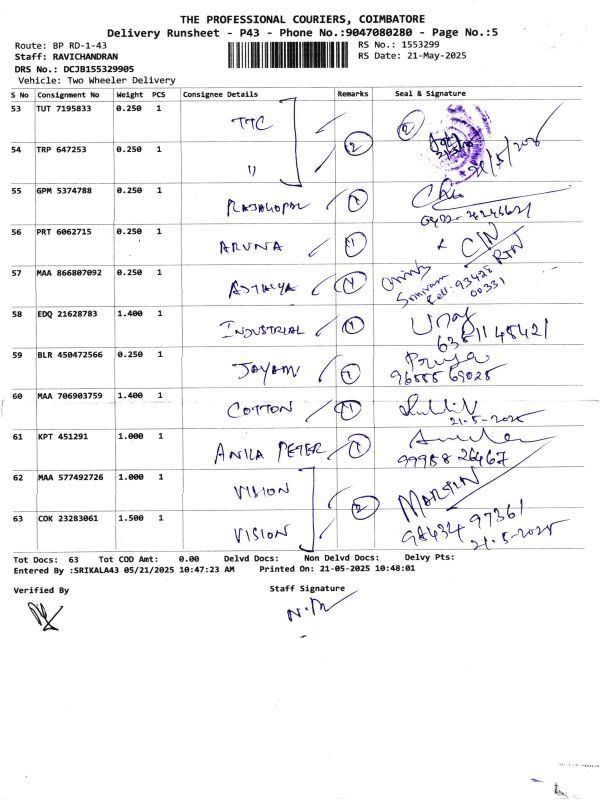 THE PROFESSIONAL COURIERS, COIMBATORE
Delivery Runsheet - P43 - Phone No.:9047080280 - Page No.:5
Route: BP RD-1-43
RS No.: 1553299
Staff: RAVICHANDRAN
RS Date: 21-May-2025
DRS No.: DCJB155329905
Vehicle: Two Wheeler Delivery
S No Consignment No Weight PCS Consignee Details Remarks Seal & Signature
53 TUT 7195833 0.250 1 TTC 2
54 TRP 647253 0.250 1 " 2 21/5/2025
55 GPM 5374788 0.250 1 RAJAGOPAL 1
56 PRT 6062715 0.250 1 ARUNA 1 C/N RTN
57 MAA 866807092 0.250 1 1 Srinivasan
Cell: 93428
00331
58 EDQ 21628783 1.400 1 INDUSTRIAL 1
59 BLR 450472566 0.250 1 JAYAM 1 Priya
96555 69025
60 MAA 706903759 1.400 1 COTTON 1
21-5-2025
61 KPT 451291 1.000 1 ANILA PETER 1
99958 26467
62 MAA 577492726 1.000 1 VISION 2 MARTIN
63 COK 23283061 1.500 1 VISION 98434 97361
21-5-2025
Tot Docs: 63 Tot COD Amt: 0.00 Delvd Docs: Non Delvd Docs: Delvy Pts:
Entered By :SRIKALA43 05/21/2025 10:47:23 AM Printed On: 21-05-2025 10:48:01
Verified By Staff Signature